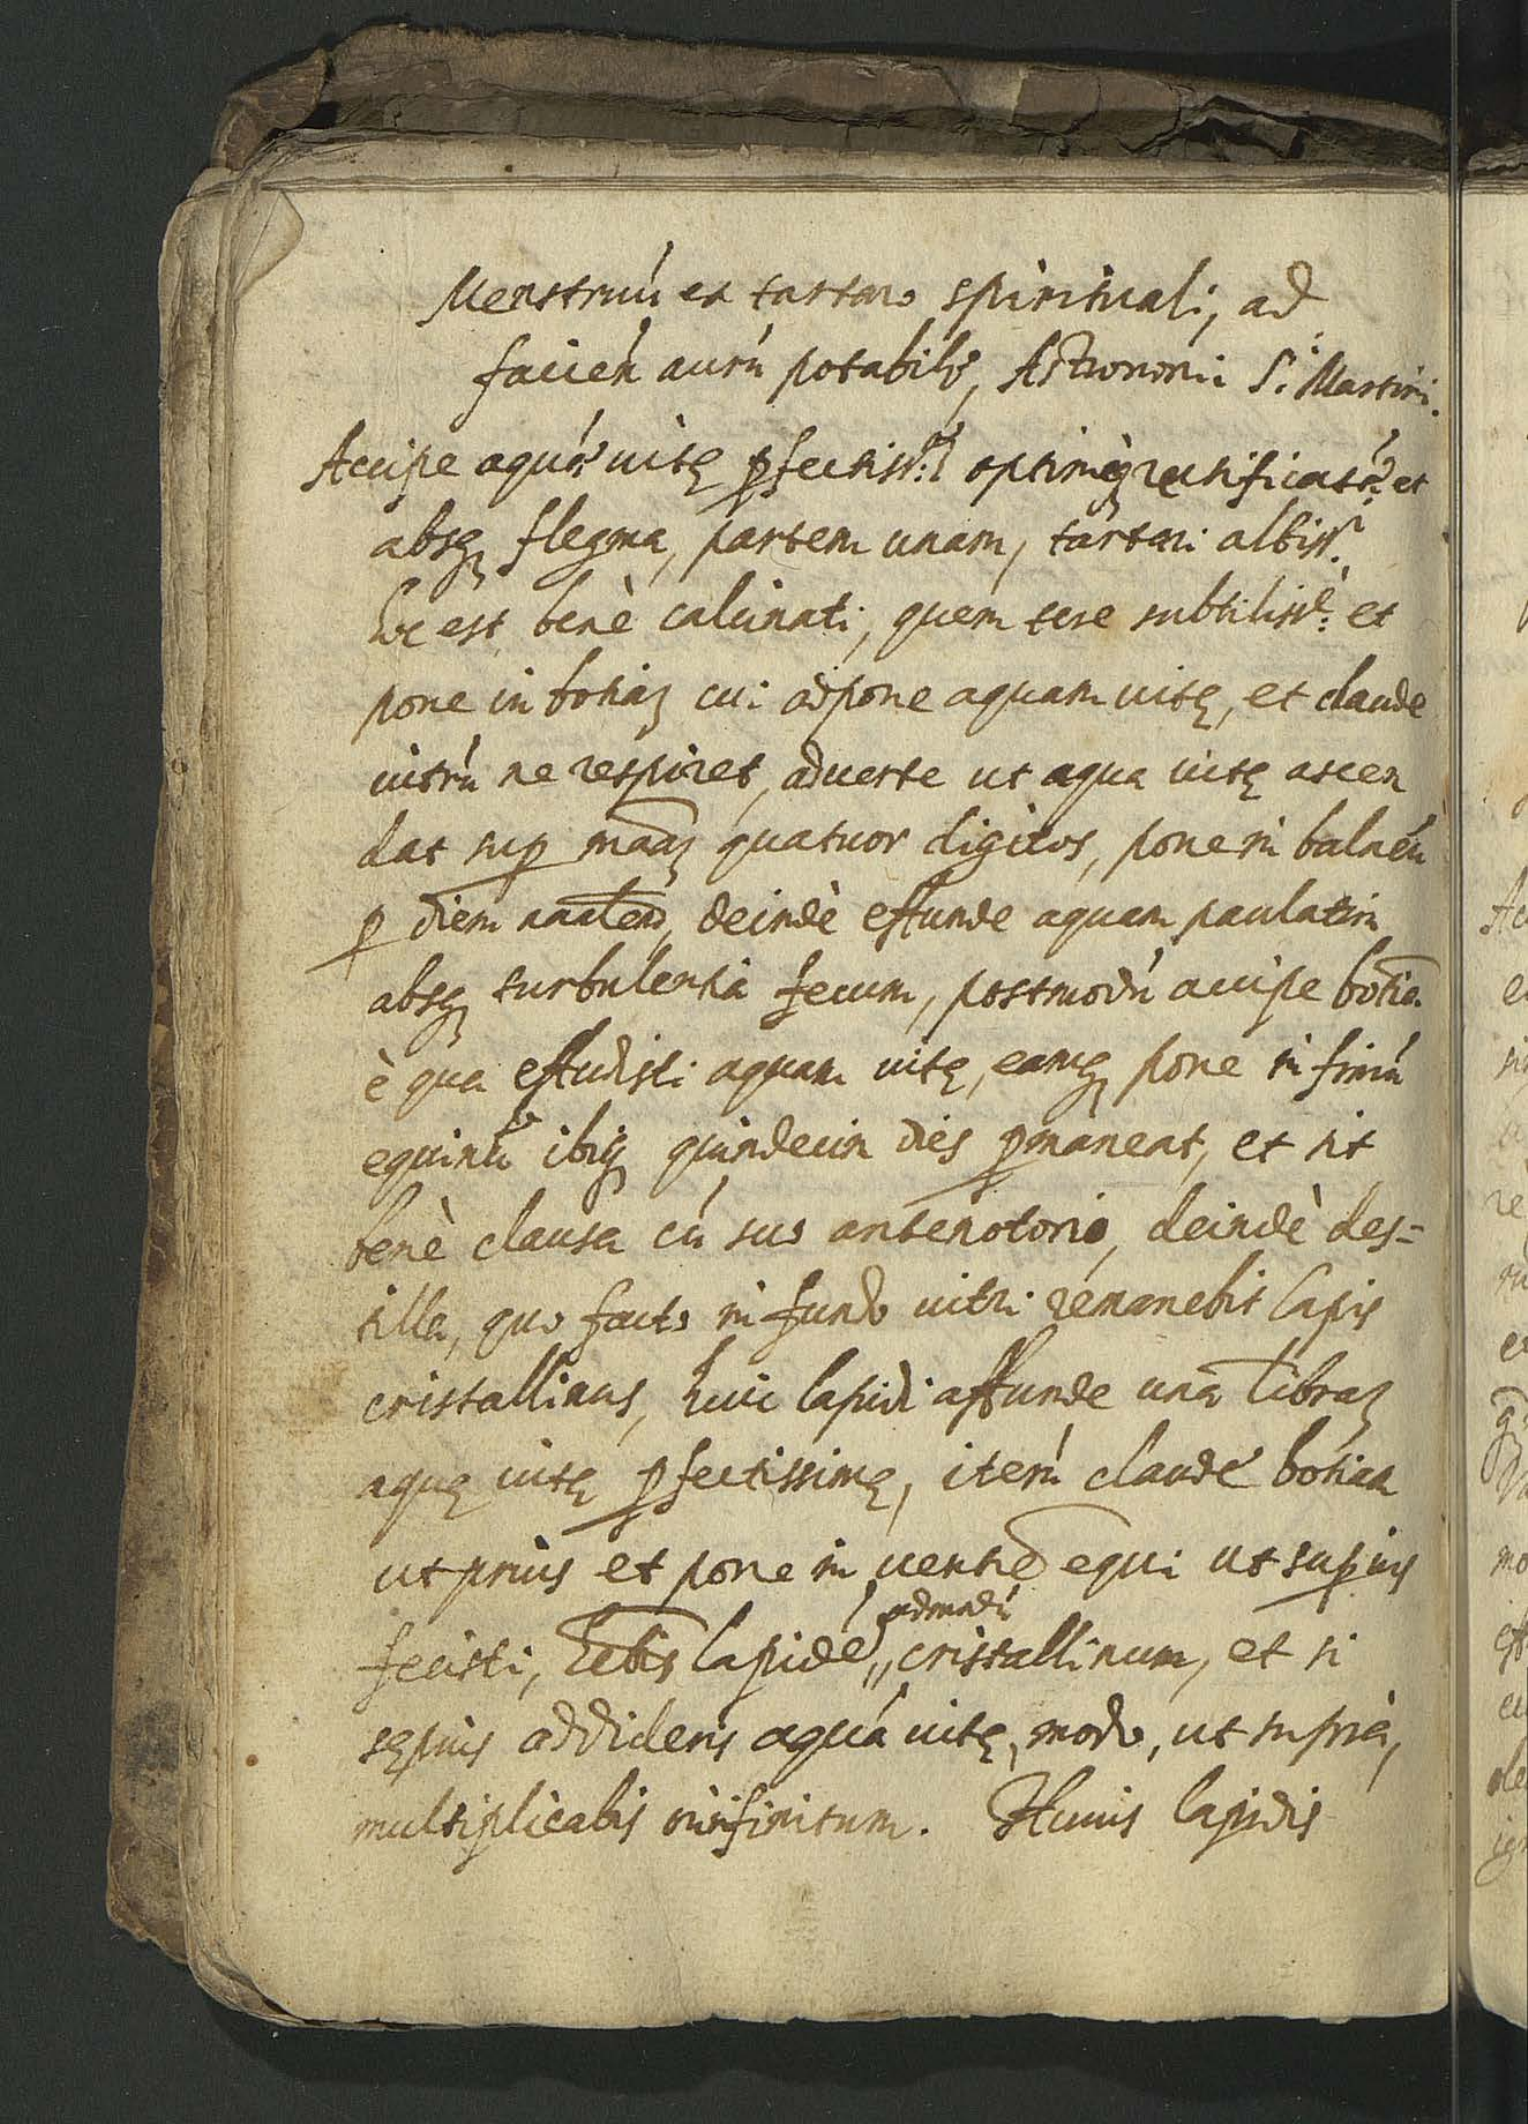 Menstruú ex tartaro spirituali, ad
facień aurú potabile, Astronomii S.i Martini.
Accipe aquá uitę ꝑfectiss.ᵃ optimèq; rectificatá et
absq; flegma, partem unam, tartari albiss.i
hoc est benè calcinati, quem tere subtiliss.è et
pone in botiaʒ cui adpone aquam uitę, et claude
uitrú ne respiret, aduerte ut aqua uitę ascen
dat suꝑ maãʒ quatuor digitos, pone in balneú
ꝑ diem deindè effunde aquam paulatim
absq; turbulentia fecum, postmodú accipe botiã
è qua effudisti aquam uitę, eamq; pone in fimú
equinú ibiq; quindecim dies ꝑmaneat, et sit
benè clausa cú suo antenotorio, deindè des=
tilla, quo facto in fundo uitri remanebit lapis
cristallinus, huic lapidi affunde unã libraʒ
aquę uitę ꝑfectissimę, iterú claude botiam
ut prius et pone in uentrẽ equi ut suꝑius
fecisti, hẽbis lapidé admodú cristallinum, et si
sępius addideris aquá uitę, modo, ut suprà,
multiplicabis in infinitum. Huius lapidis